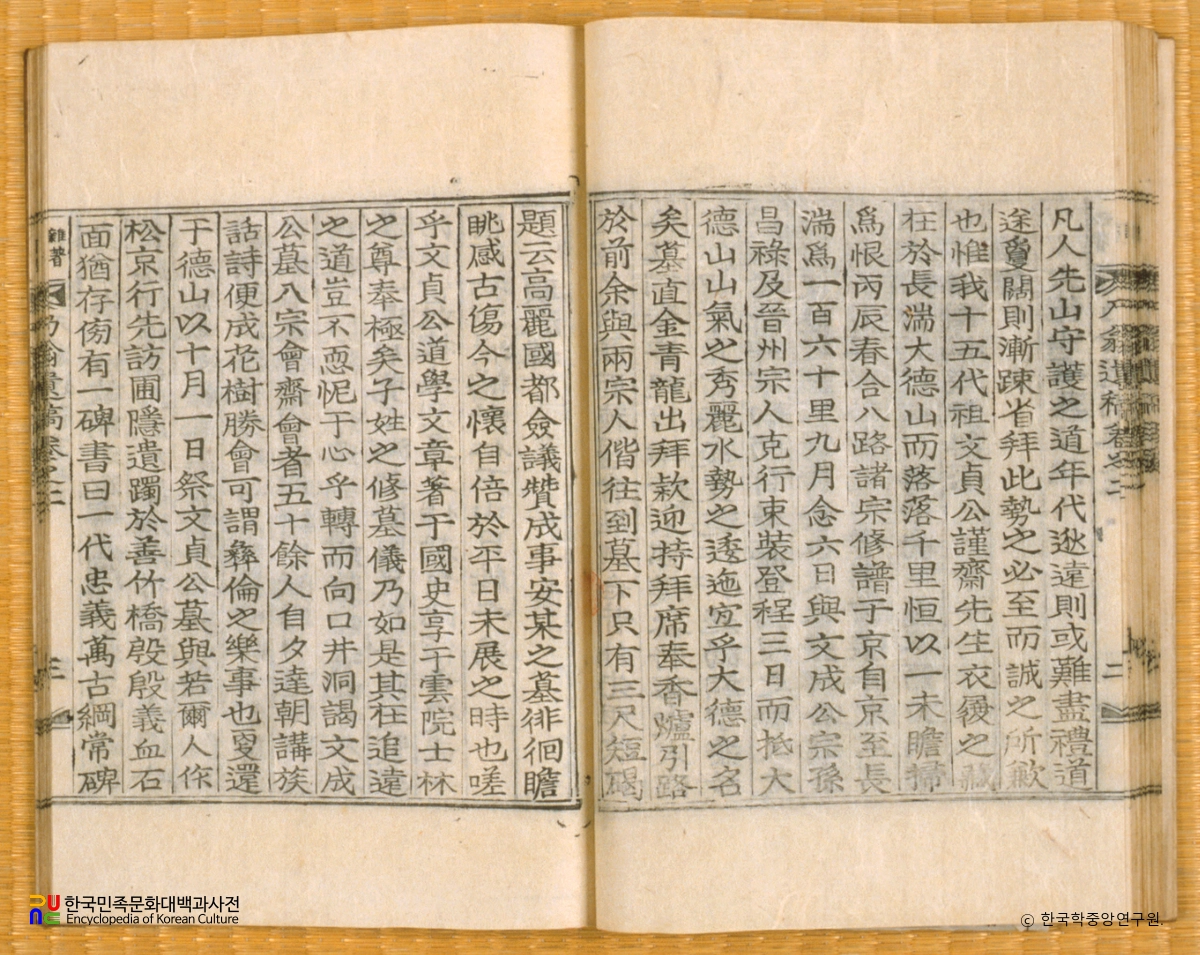 凡人先山守護之道年代逖遠則或難盡禮道
途敻闊則漸踈省拜此勢之必至而誠之所歉
也惟我十五代祖文貞公謹齋先生衣履之藏
在於長湍大德山而落落千里恒以一未瞻掃
爲恨丙辰春合八路諸宗修譜于京自京至長
湍爲一百六十里九月念六日與文成公宗孫
昌祿及晉州宗人克行束裝登程三日而抵大
德山山氣之秀麗水勢之逶迤宜乎大德之名
矣墓直金青龍出拜款迎持拜席奉香爐引路
於前余與兩宗人偕往到墓下只有三尺短碣
題云高麗國都僉議贊成事安某之墓徘徊瞻
眺感古傷今之懷自倍於平日未展之時也嗟
乎文貞公道學文章著于國史享于雲院士林
之尊奉極矣子姓之修墓儀乃如是其在追遠
之道豈不恧怩于心乎轉而向口井洞謁文成
公墓八宗會齋會者五十餘人自夕達朝講族
話詩便成花樹勝會可謂彛倫之樂事也敻還
于德山以十月一日祭文貞公墓與若爾人作
松京行先訪圃隱遺躅於善竹橋殷殷義血石
面猶存傍有一碑書曰一代忠義萬古綱常碑
雜著
遺稿卷之二
三
遺稿卷之二
二
한국민족문화대백과사전
Encyclopedia of Korean Culture
© 한국학중앙연구원.